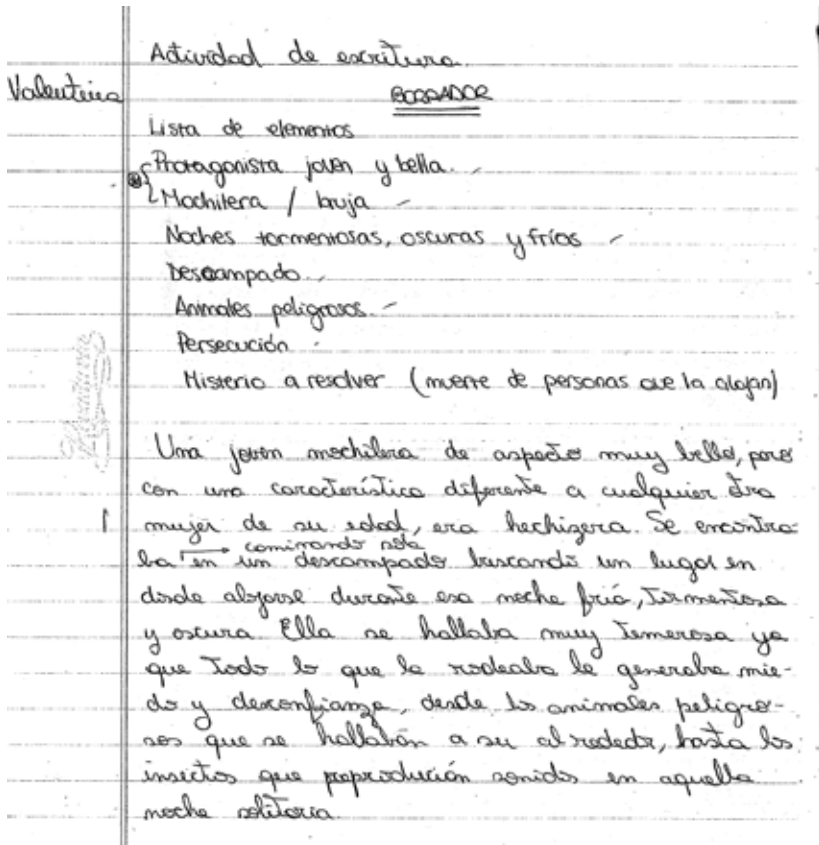 Actividad de escritura
Valentina
BORRADOR
Lista de elementos
Protagonista joven y bella.
Mochilera / bruja
Noches tormentosas, oscuras y fríos
Descampado.
Animales peligrosos.
Persecución
Misterio a resolver (muerte de personas que la alojan)
Una joven mochilera de aspecto muy bello, pero
con una característica diferente a cualquier otra
mujer de su edad, era hechizera. Se encontra-
caminando sola
ba en un descampado buscando un lugar en
donde alojarse durante esa noche fría, tormentosa
y oscura Ella se hallaba muy temerosa ya
que todo lo que la rodeaba le generaba mie-
do y desconfianza, desde los animales peligro-
sos que se hallaban a su alrededor, hasta los
insectos que sonidos en aquella
noche solitaria.